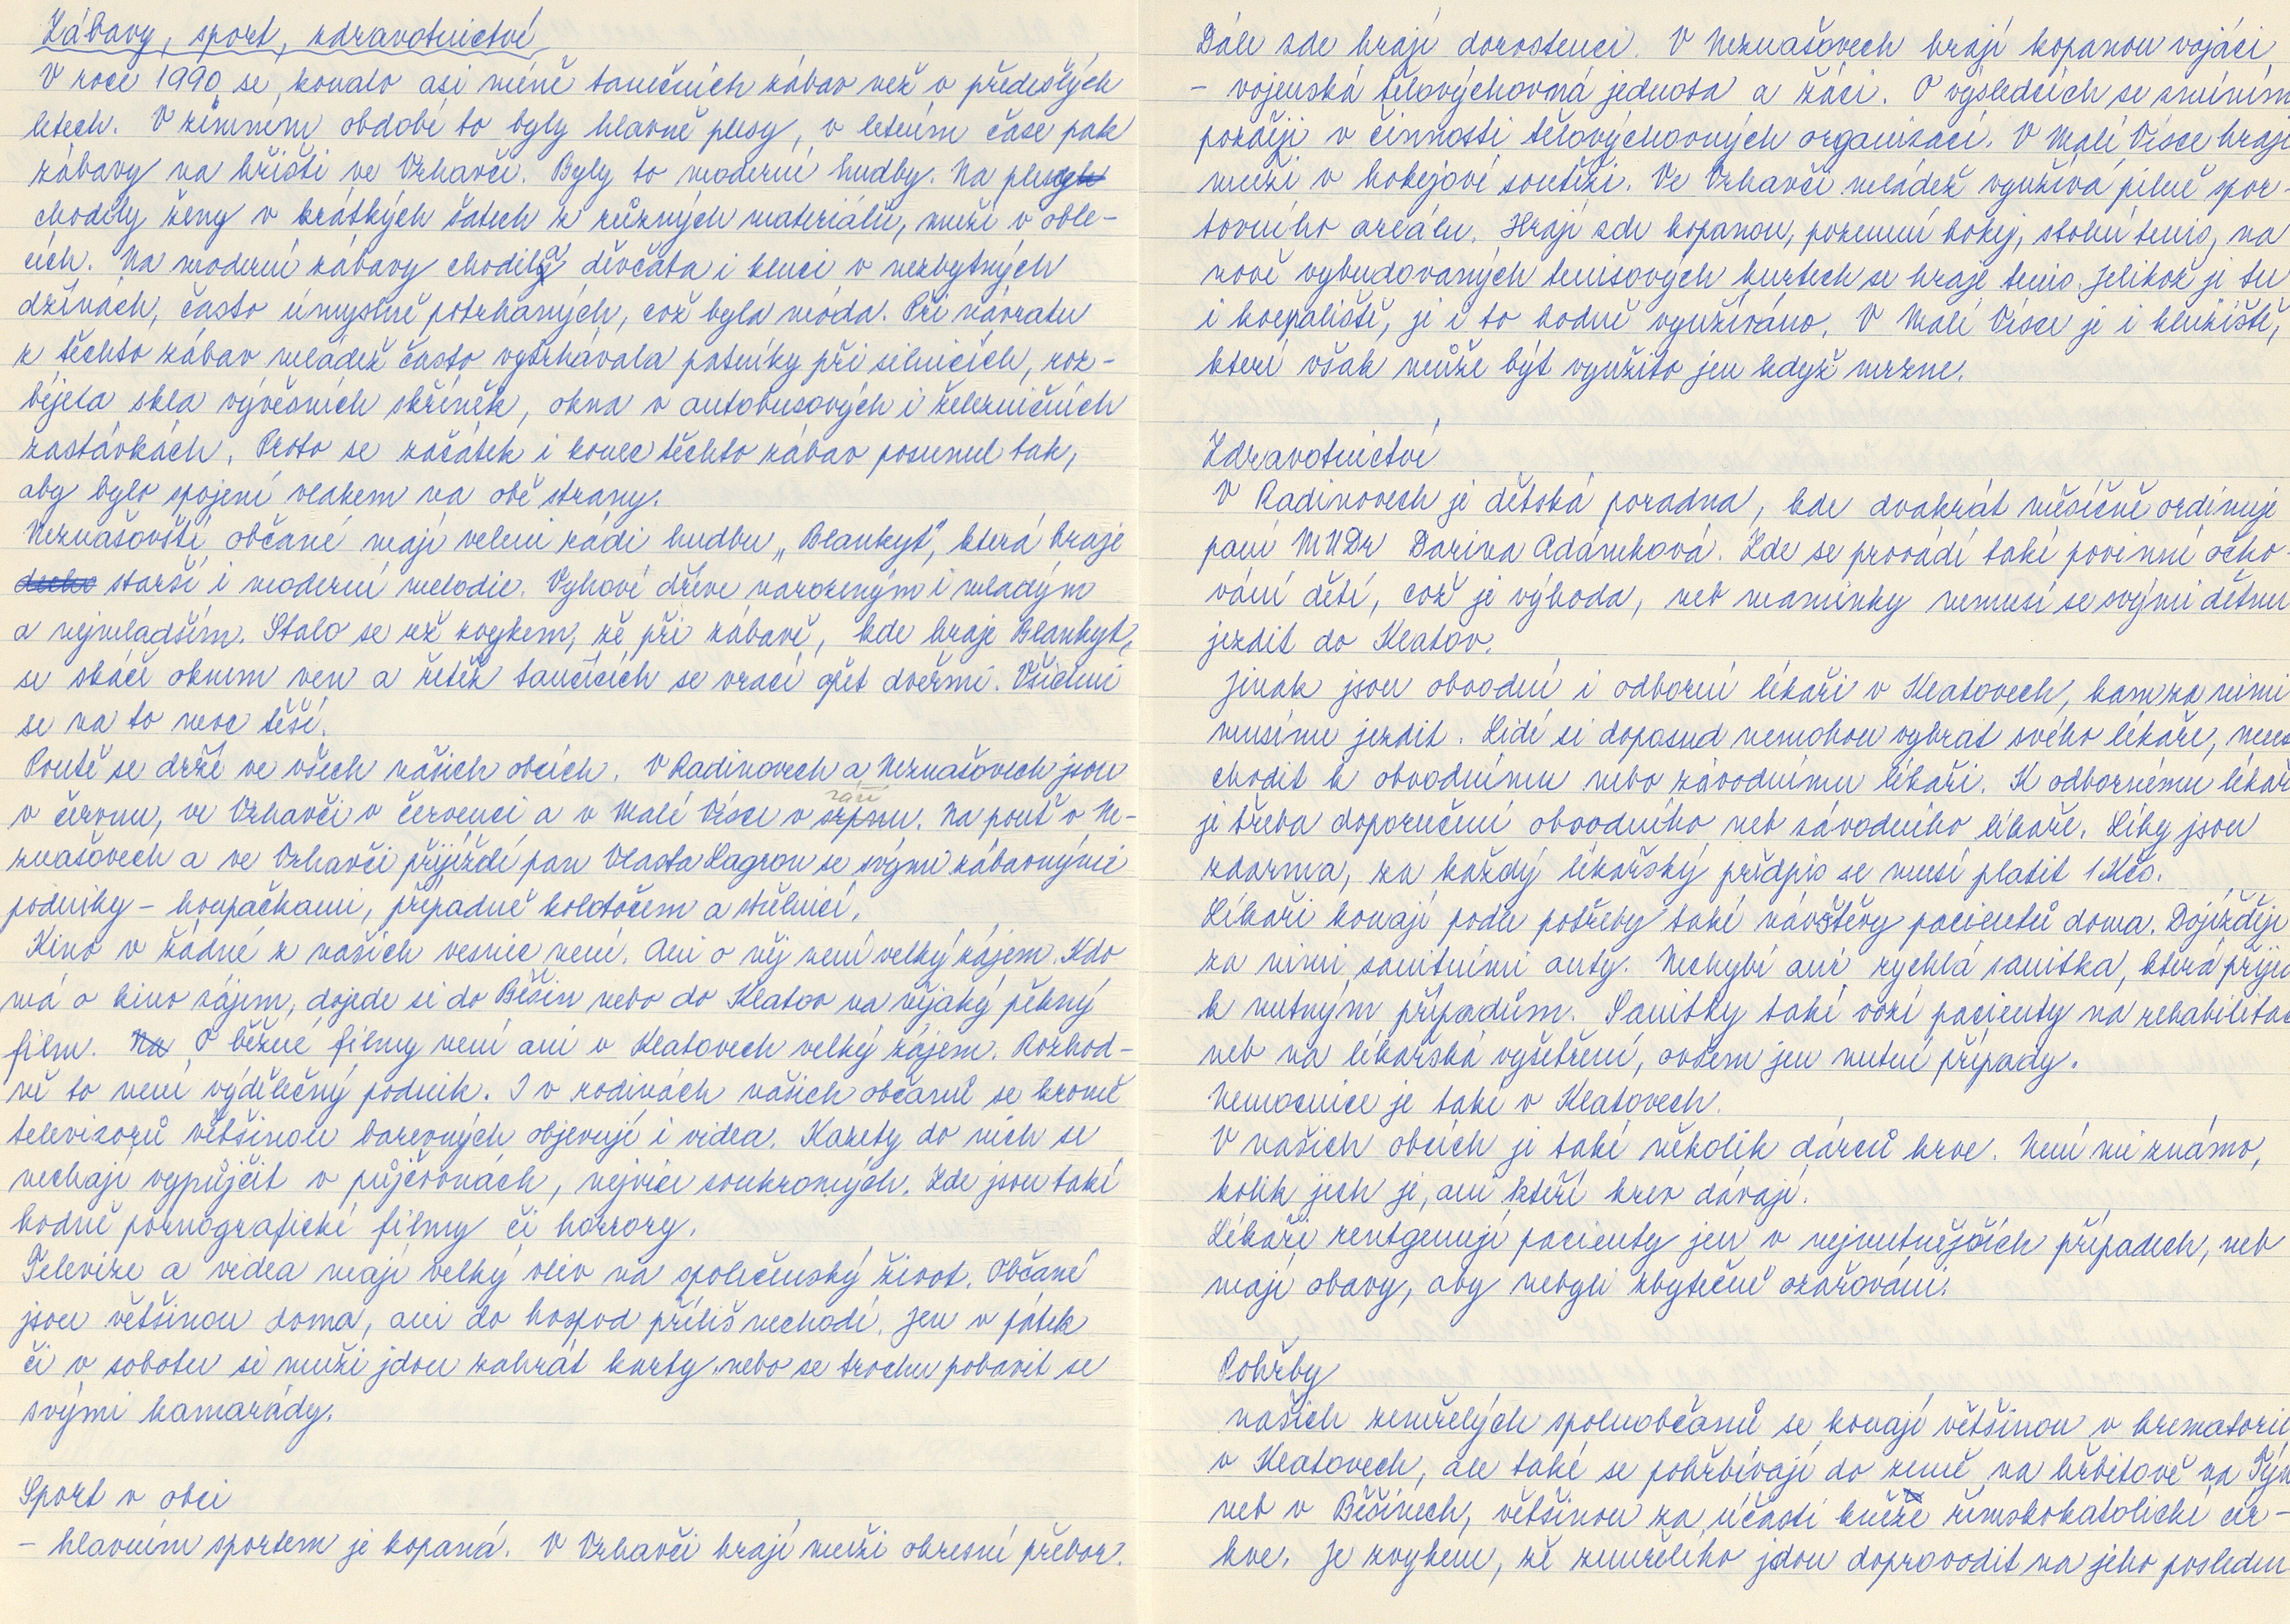 Zábavy, sport, zdravotnictví
V roce 1990 se konalo asi méně tanečních zábav než v předešlých
letech. V zimním období to byly hlavně plesy, v letním čase pak
zábavy na hřišti ve Vrhavči. Byly to moderní hudby. Na plesy
chodily ženy v krátkých šatech z různých materiálů, muži v oble-
cích. Na moderní zábavy chodila děvčata i kluci v nezbytných
džínách, často úmyslně potrhaných, což byla móda. Při návratu
z těchto zábav mládež často vytrhávala patníky při silnicích, roz-
bíjela skla vývěsních skříněk, okna v autobusových i železničních
zastávkách. Proto se začátek i konec těchto zábav posunul tak,
aby bylo spojení vlakem na obě strany.
Neznašovští občané mají velmi rádi hudbu „Blankyt", která hraje
starší i moderní melodie. Vyhoví dříve narozeným i mladým
a nejmladším. Stalo se už zvykem, že při zábavě, kde hraje Blankyt,
se skáče oknem ven a řetěz tančících se vrací opět dveřmi. Všichni
se na to moc těší.
Poutě se drží ve všech našich obcích. V Radinovech a Neznašovech jsou
v červnu, ve Vrhavči v červenci a v Malé Vísce v srpnu. Na pouť v Ne-
září
znašovech a ve Vrhavči přijíždí pan Vlasta Lagron se svými zábavnými
podniky – houpačkami, případně kolotočem a střelnicí.
Kino v žádné z našich vesnic není. Ani o něj není velký zájem. Kdo
má o kino zájem, dojede si do Běšin nebo do Klatov na nějaký pěkný
film. Na O běžné filmy není ani v Klatovech velký zájem. Rozhod-
ně to není výdělečný podnik. I v rodinách našich občanů se kromě
televizorů většinou barevných objevují i videa. Kazety do nich se
nechají vypůjčit v půjčovnách, nejvíce soukromých. Zde jsou také
hodně pornografické filmy či horrory.
Televize a videa mají velký vliv na společenský život. Občané
jsou většinou doma, ani do hospod příliš nechodí. Jen v pátek
či v sobotu si muži jdou zahrát karty nebo se trochu pobavit se
svými kamarády.
Sport v obci
– hlavním sportem je kopaná. V Vrhavči hrají muži okresní přebor.
Dále zde hrají dorostenci. V Neznašovech hrají kopanou vojáci
– vojenská tělovýchovná jednota a žáci. O výsledcích se zmíním
později v činnosti tělovýchovných organizací. V Malé Vísce hrají
muži v hokejové soutěži. Ve Vrhavči mládež využívá pilně spor-
tovního areálu. Hrají zde kopanou, pozemní hokej, stolní tenis, na
nově vybudovaných tenisových kurtech se hraje tenis. Jelikož je tu
i koupaliště, je i to hodně využíváno. V Malé Vísce je i kluziště,
které však může být využito jen když mrzne.
Zdravotnictví
V Radinovech je dětská poradna, kde dvakrát měsíčně ordinuje
paní MUDr Darina Adámková. Zde se provádí také povinné očko-
vání dětí, což je výhoda, neb maminky nemusí se svými dětmi
jezdit do Klatov.
Jinak jsou obvodní i odborní lékaři v Klatovech, kam za nimi
musíme jezdit. Lidé si doposud nemohou vybrat svého lékaře, musí
chodit k obvodnímu nebo závodnímu lékaři. K odbornému lékaři
je třeba doporučení obvodního neb závodního lékaře. Léky jsou
zdarma, za každý lékařský předpis se musí platit 1 Kčs.
Lékaři konají podle potřeby také návštěvy pacientů doma. Dojíždějí
za nimi sanitními auty. Nechybí ani rychlá sanitka, která přijede
k nutným případům. Sanitky také vozí pacienty na rehabilitac
neb na lékařská vyšetření, ovšem jen nutné případy.
Nemocnice je také v Klatovech.
V našich obcích je také několik dárců krve. Není mi známo,
kolik jich je, ani kteří krev dávají.
Lékaři rentgenují pacienty jen v nejnutnějších případech, neb
mají obavy, aby nebyli zbytečně ozařováni.
Pohřby
našich zemřelých spoluobčanů se konají většinou v krematoriu
v Klatovech, ale také se pohřbívají do země na hřbitově na Týn
neb v Běšinech, většinou za účasti kněze římskokatolické cír-
kve. Je zvykem, že zemřelého jdou doprovodit na jeho poslední